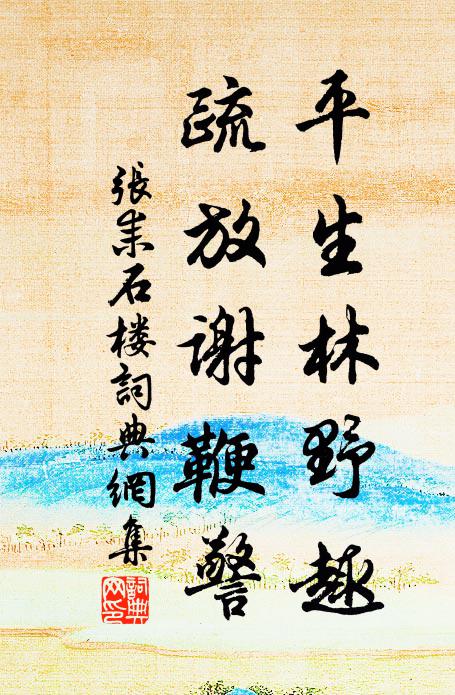 平生林野趣
疏放谢鞭警
張耒石楼詞典網集
詞典